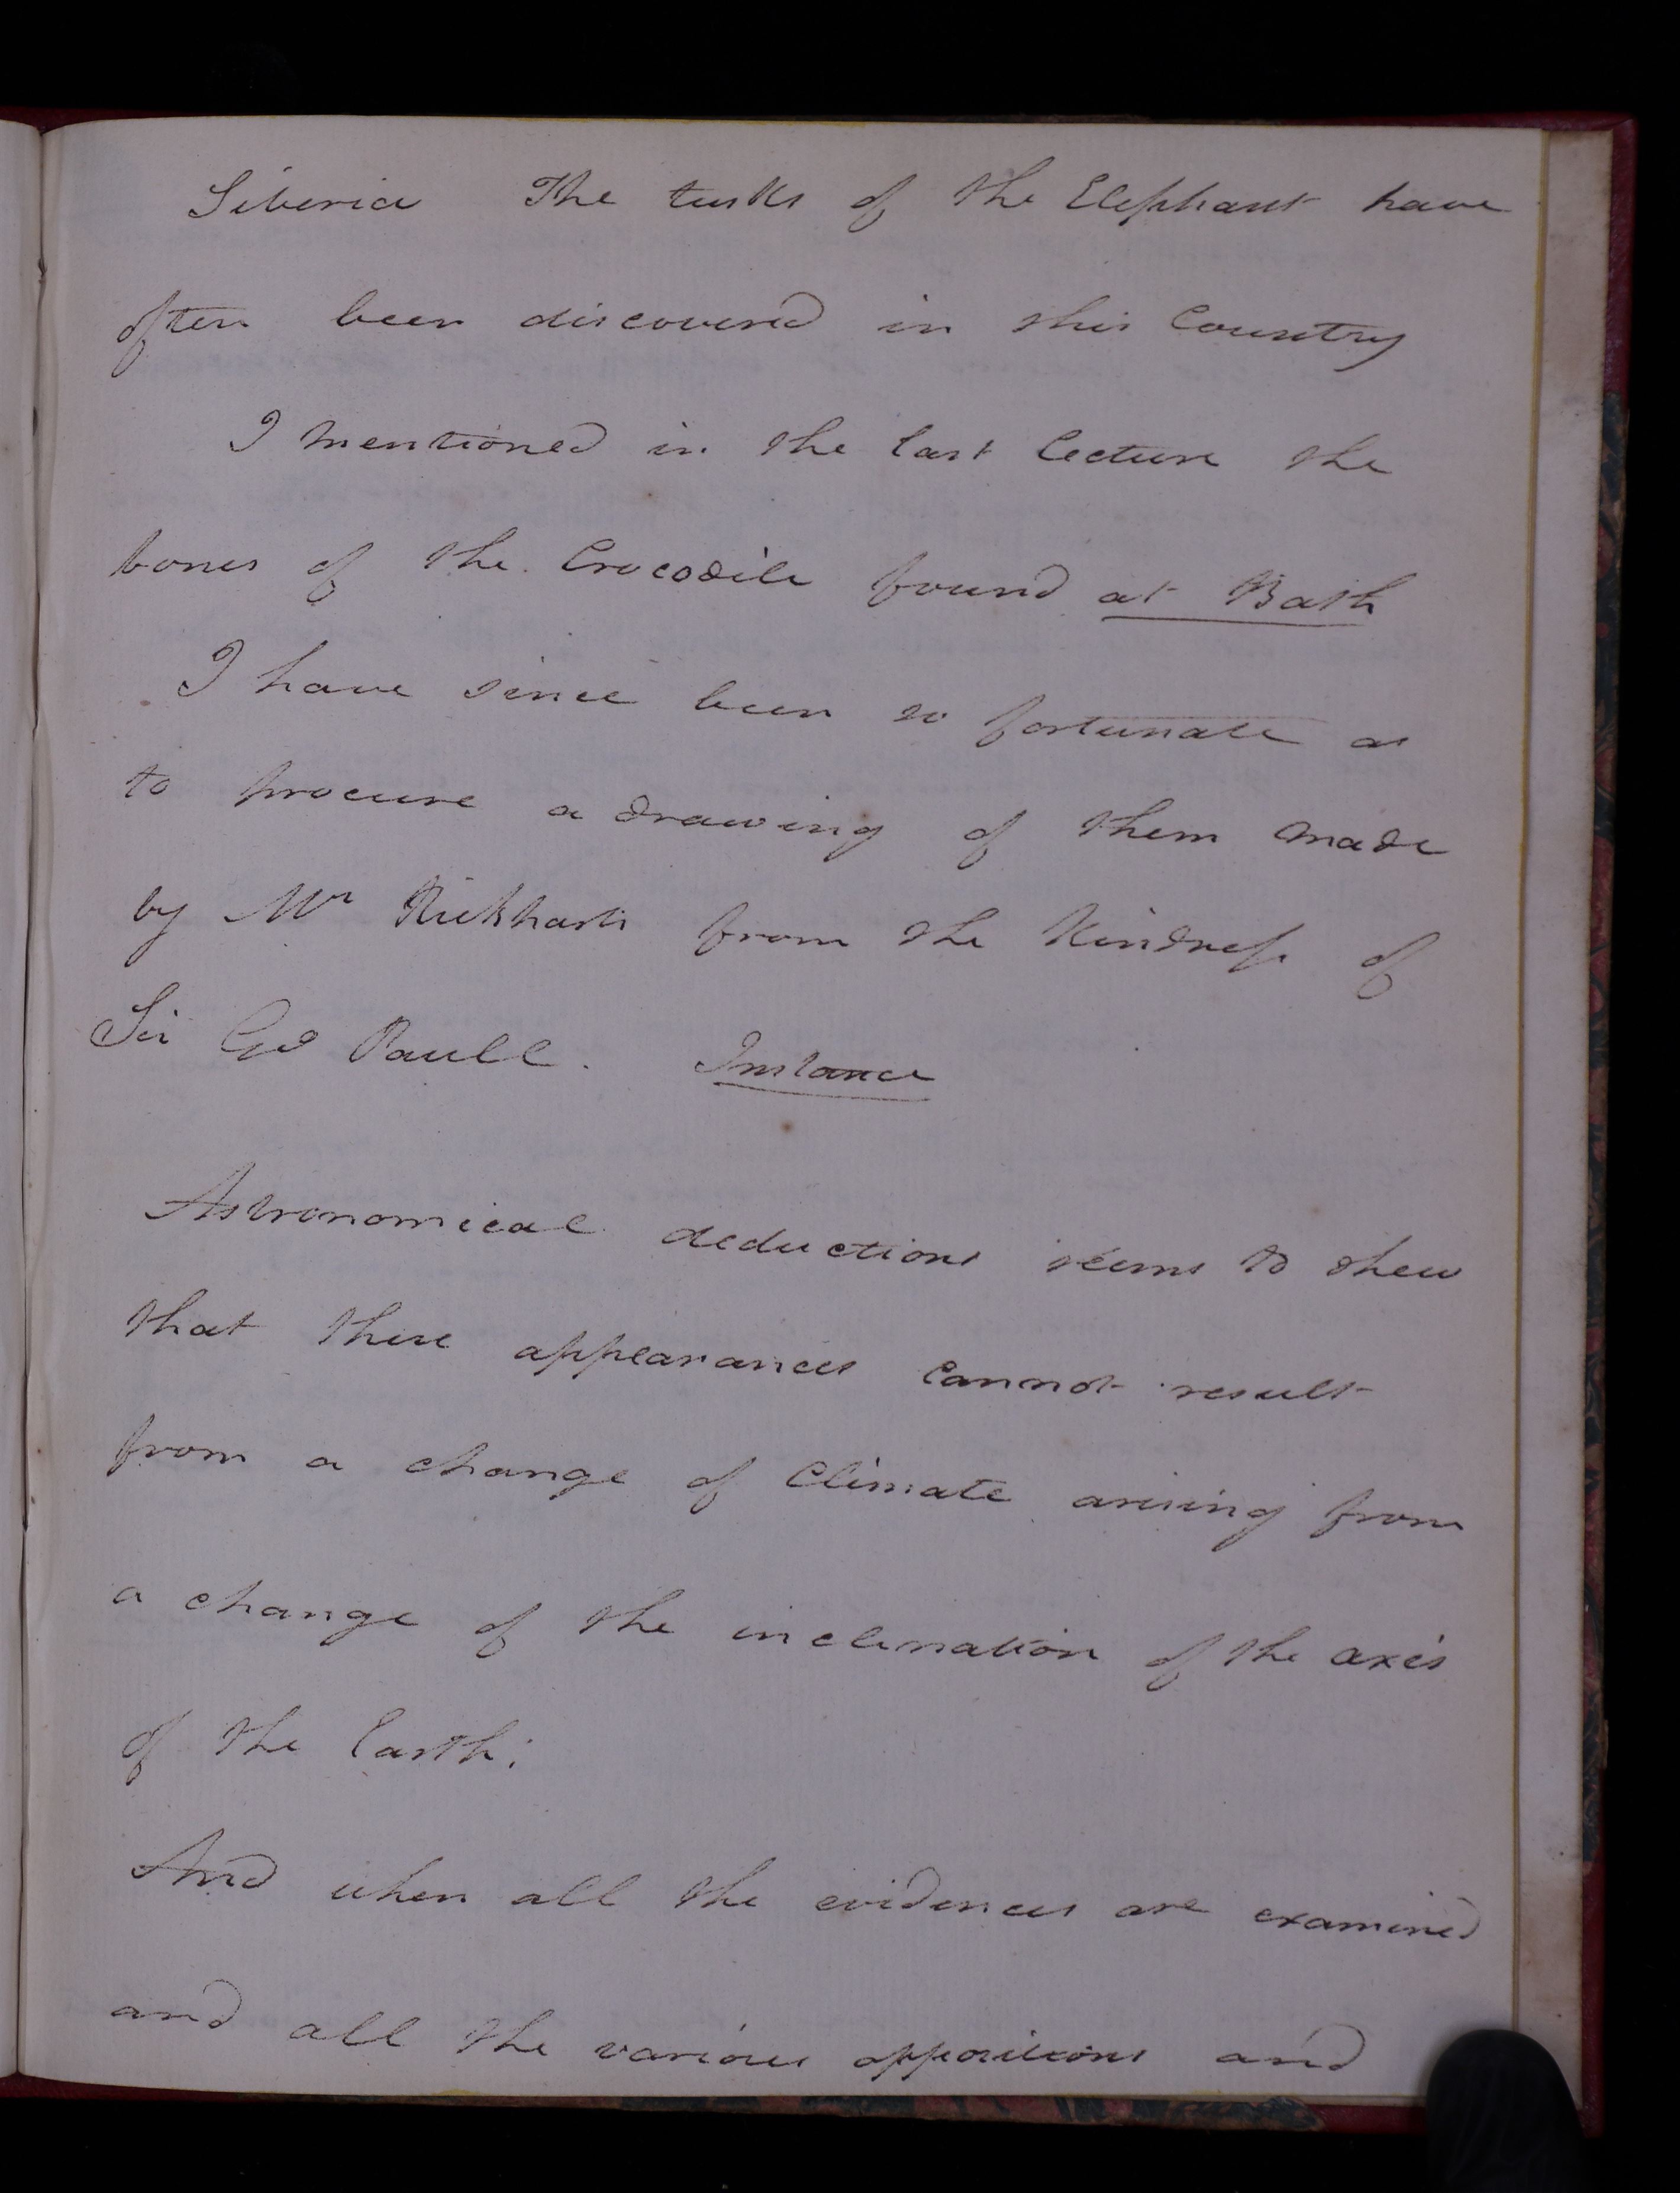 Siberia The tusks of the Elephant have
often been discovered in this Country
I mentioned in the last lecture the
bones of the Crocodile found at Bath
I have since been so fortunate as
to procure a drawing of them made
by Mr from the Kindness of
Sir Paull. Instance
Astronomical deductions seems to shew
that these appearances cannot result
from a change of Climate arising from
a change of the inclination of the axis
of the Earth;
And when all the evidences are examined
and all the various oppositions and